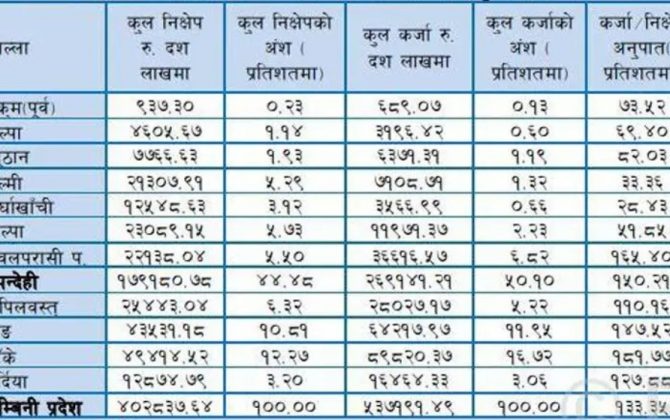 ल्ला कुल निक्षेप रु. दश लाखमा कुल निक्षेपको अंश ( प्रतिशतमा) कुल कर्जा रु. दश लाखमा कुल कर्जाको अंश ( प्रतिशतमा) कर्जा/निक्षे अनुपात( प्रतिशतमा)
कुम(पूर्व) ९३७.३० ०.२३ ६८९.०७ ०.१३ ७३.५२
ल्पा ४६०५.६७ १.१४ ३१९६.४२ ०.६० ६९.४०
ठान ७७६६.६३ १.९३ ६३७१.३१ १.१९ ८२.०३
ल्मी २१३०७.९१ ५.२९ ७१०८.७१ १.३२ ३३.३६
र्घाखाँची १२५४८.६३ ३.१२ ३५६६.९९ ०.६६ २८.४३
ल्पा २३०८९.१५ ५.७३ ११९७१.३७ २.२३ ५१.८५
वलपरासी प. २२१३८.०४ ५.५० ३६६१६.५७ ६.८२ १६५.४०
न्देही १७९१८०.७८ ४४.४८ २६९१४१.२१ ५०.१० १५०.२१
पिलवस्तु २५४४३.०४ ६.३२ २८०२७.१७ ५.२२ ११०.१६
ङ ४३५३१.१८ १०.८१ ६४२१७.९७ ११.९५ १४७.५२
के ४९४१४.५२ १२.२७ ८९८२०.३७ १६.७२ १८१.७७
र्दिया १२८७४.७९ ३.२० १६४६४.३३ ३.०६ १२७.८८
म्बिनी प्रदेश ४०२८३७.६४ १००.०० ५३७१९१.४९ १००.०० १३३.३५